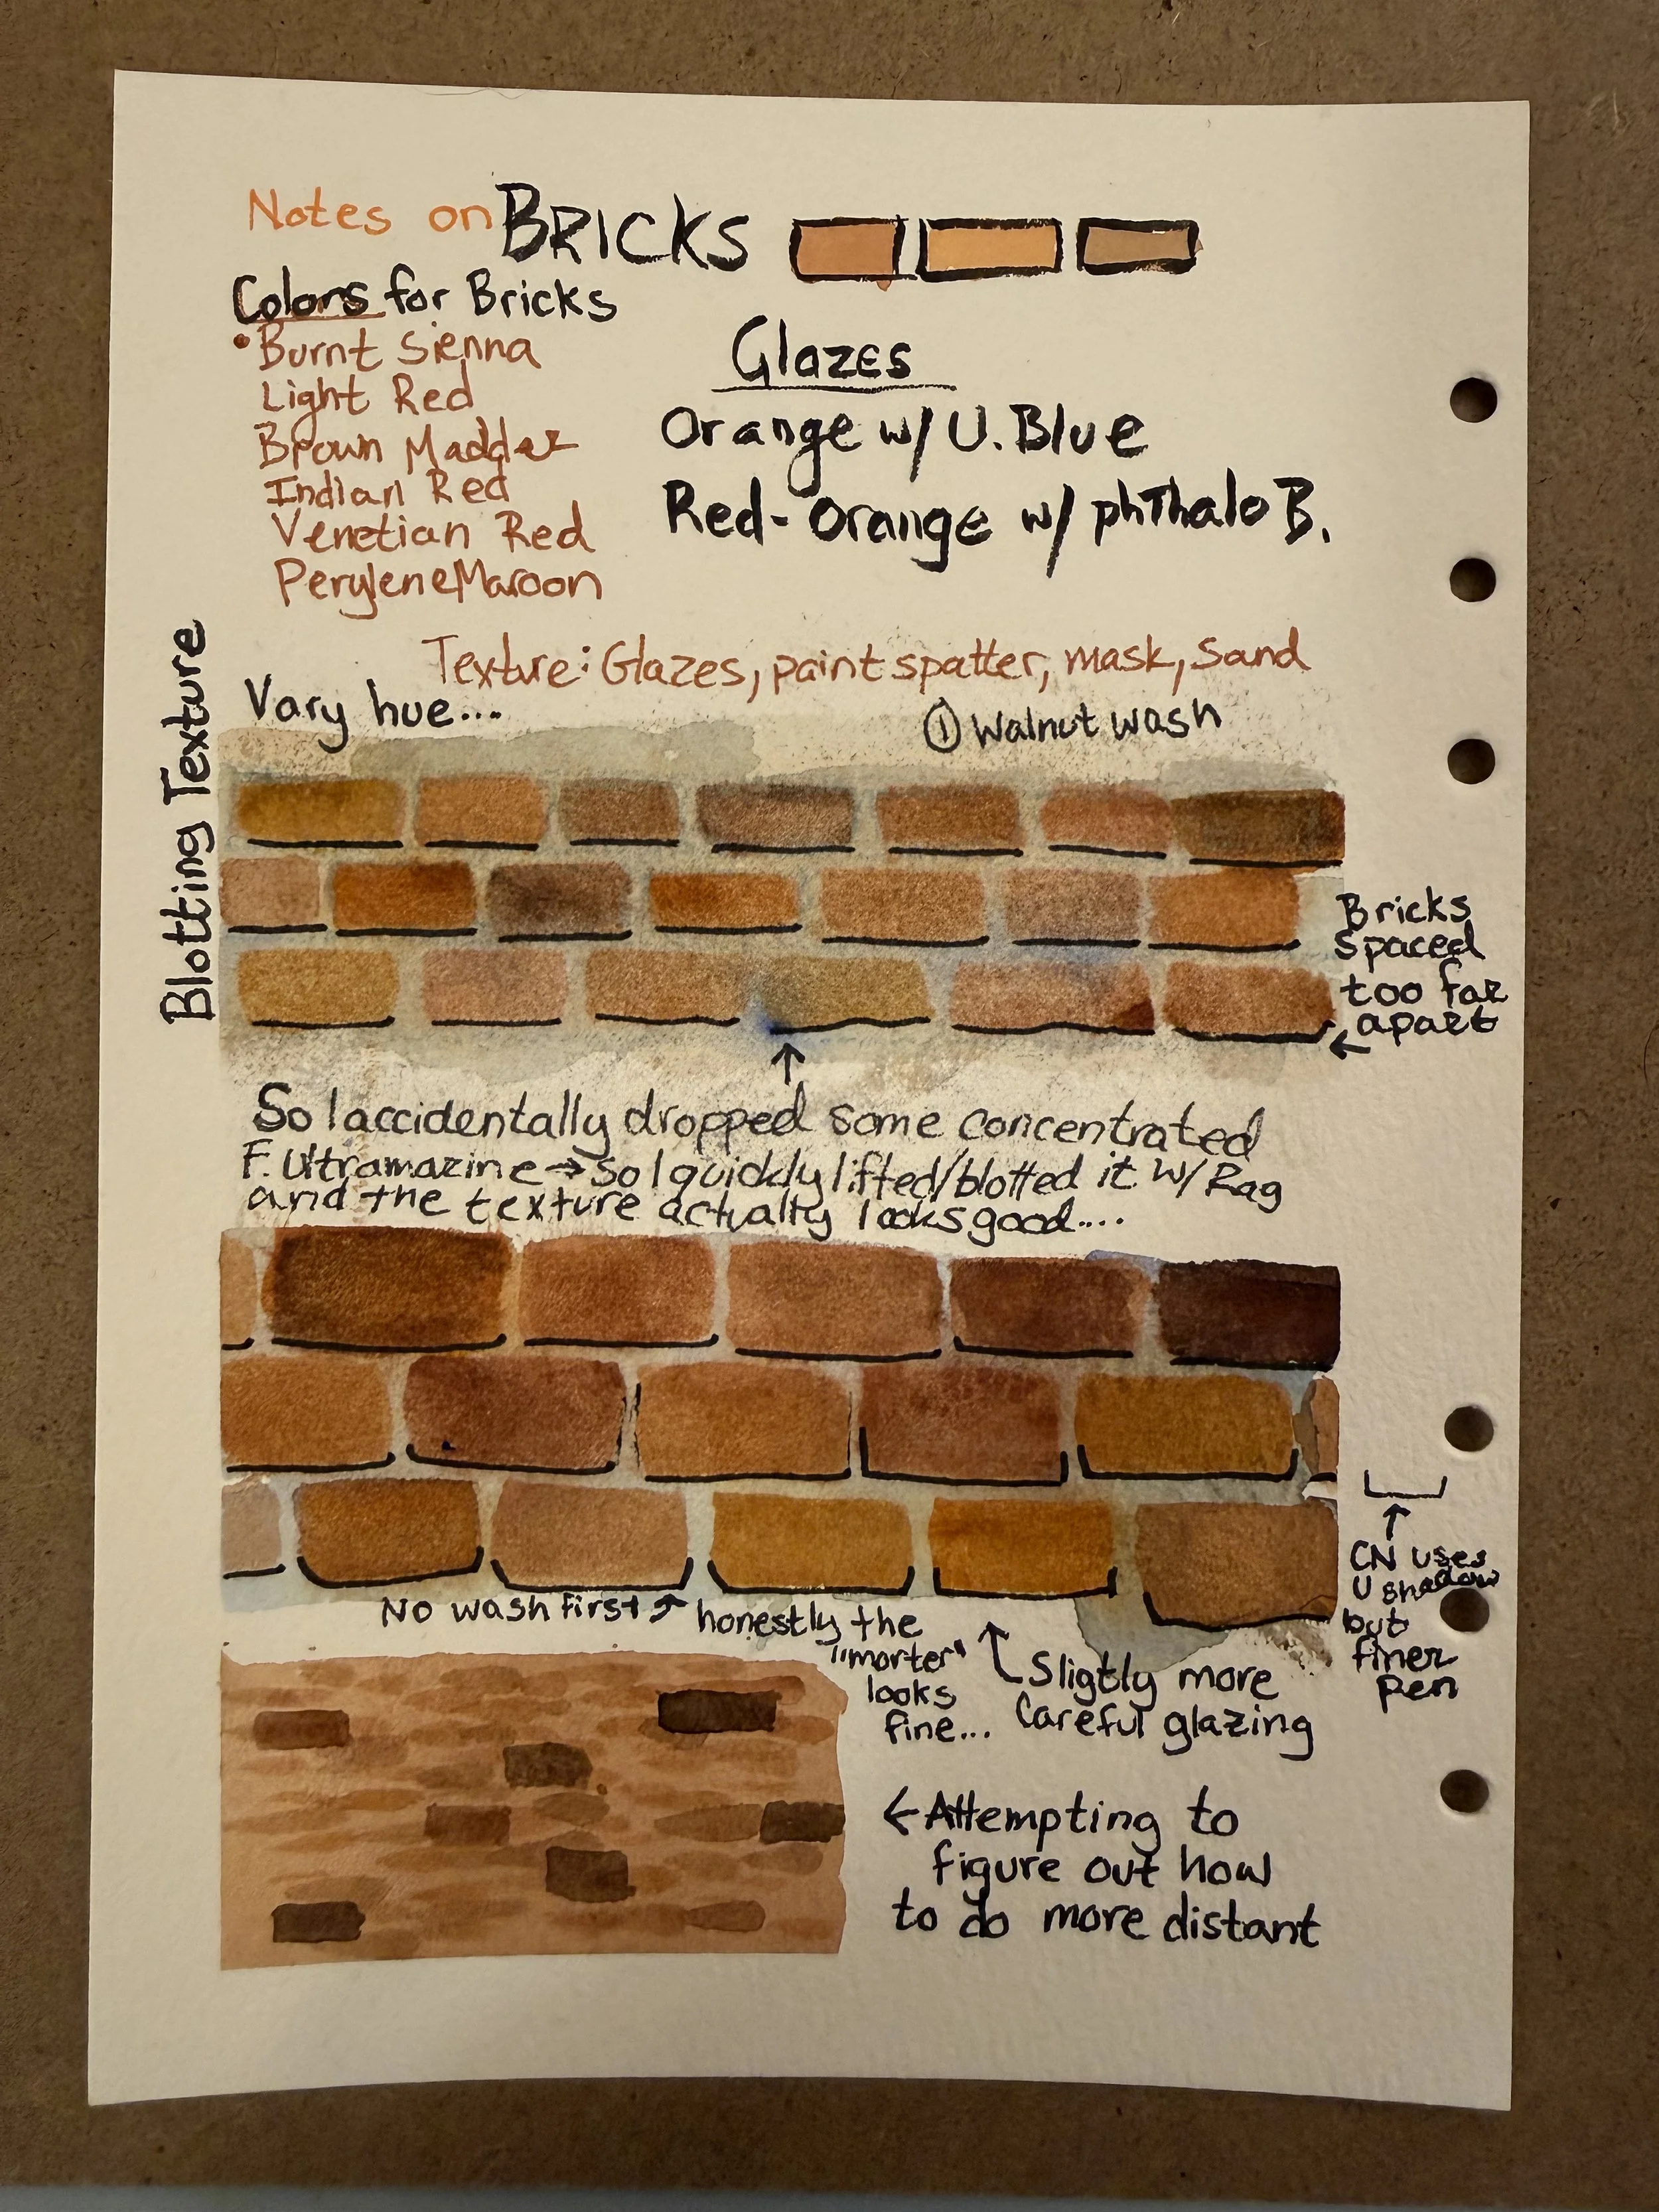 Notes on BRICKS
Colors for Bricks
• Burnt Sienna
Light Red
Brown Madder
Indian Red
Venetian Red
Perylene Maroon
Glazes
Orange w/ U. Blue
Red-Orange w/ phThalo B.
Texture: Glazes, paint spatter, mask, Sand
Blotting Texture
Vary hue....
① Walnut wash
Bricks
spaced
too far
apart
←
↑
So I accidentally dropped some concentrated
F. Ultramarine → so I quickly lifted/blotted it w/ Rag
and the texture actualty looks good....
↑
CN uses
U shadow
but
finer
pen
No wash first ↗ honestly the
"morter"
looks
fine...
Sligtly more
Careful glazing
← Attempting to
figure out how
to do more distant